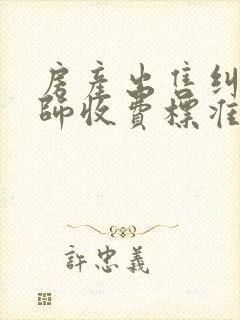 房產出售糾
師收費標准
許忠義